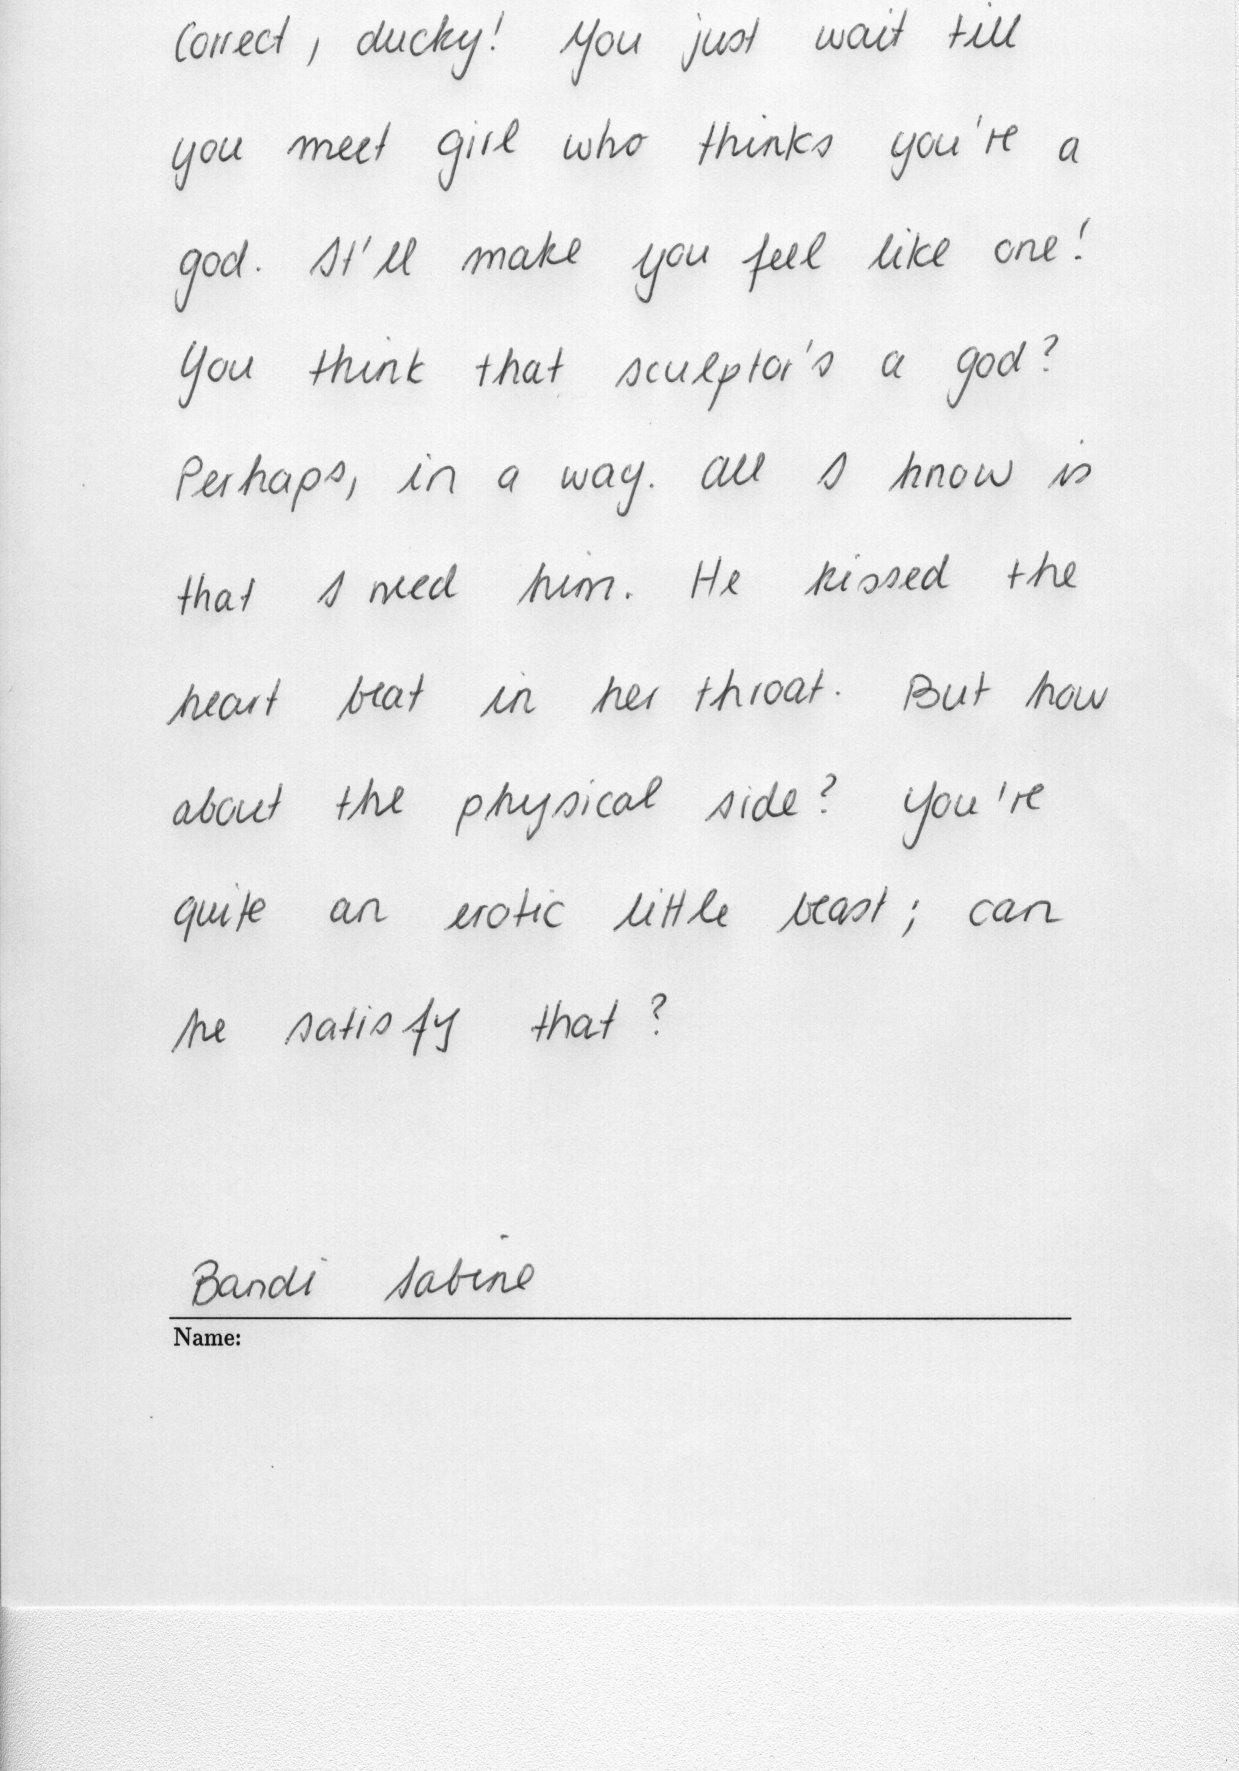 Correct, ducky! You just wait till
you meet girl who thinks you're a
god. It'll make you feel like one!
You think that sculptor's a god?
Perhaps, in a way. All I know is
that I need him. He kissed the
heart beat in her throat. But how
about the physical side? You're
quite an erotic little beast; can
he satisfy that?
Bandi Sabine
Name: